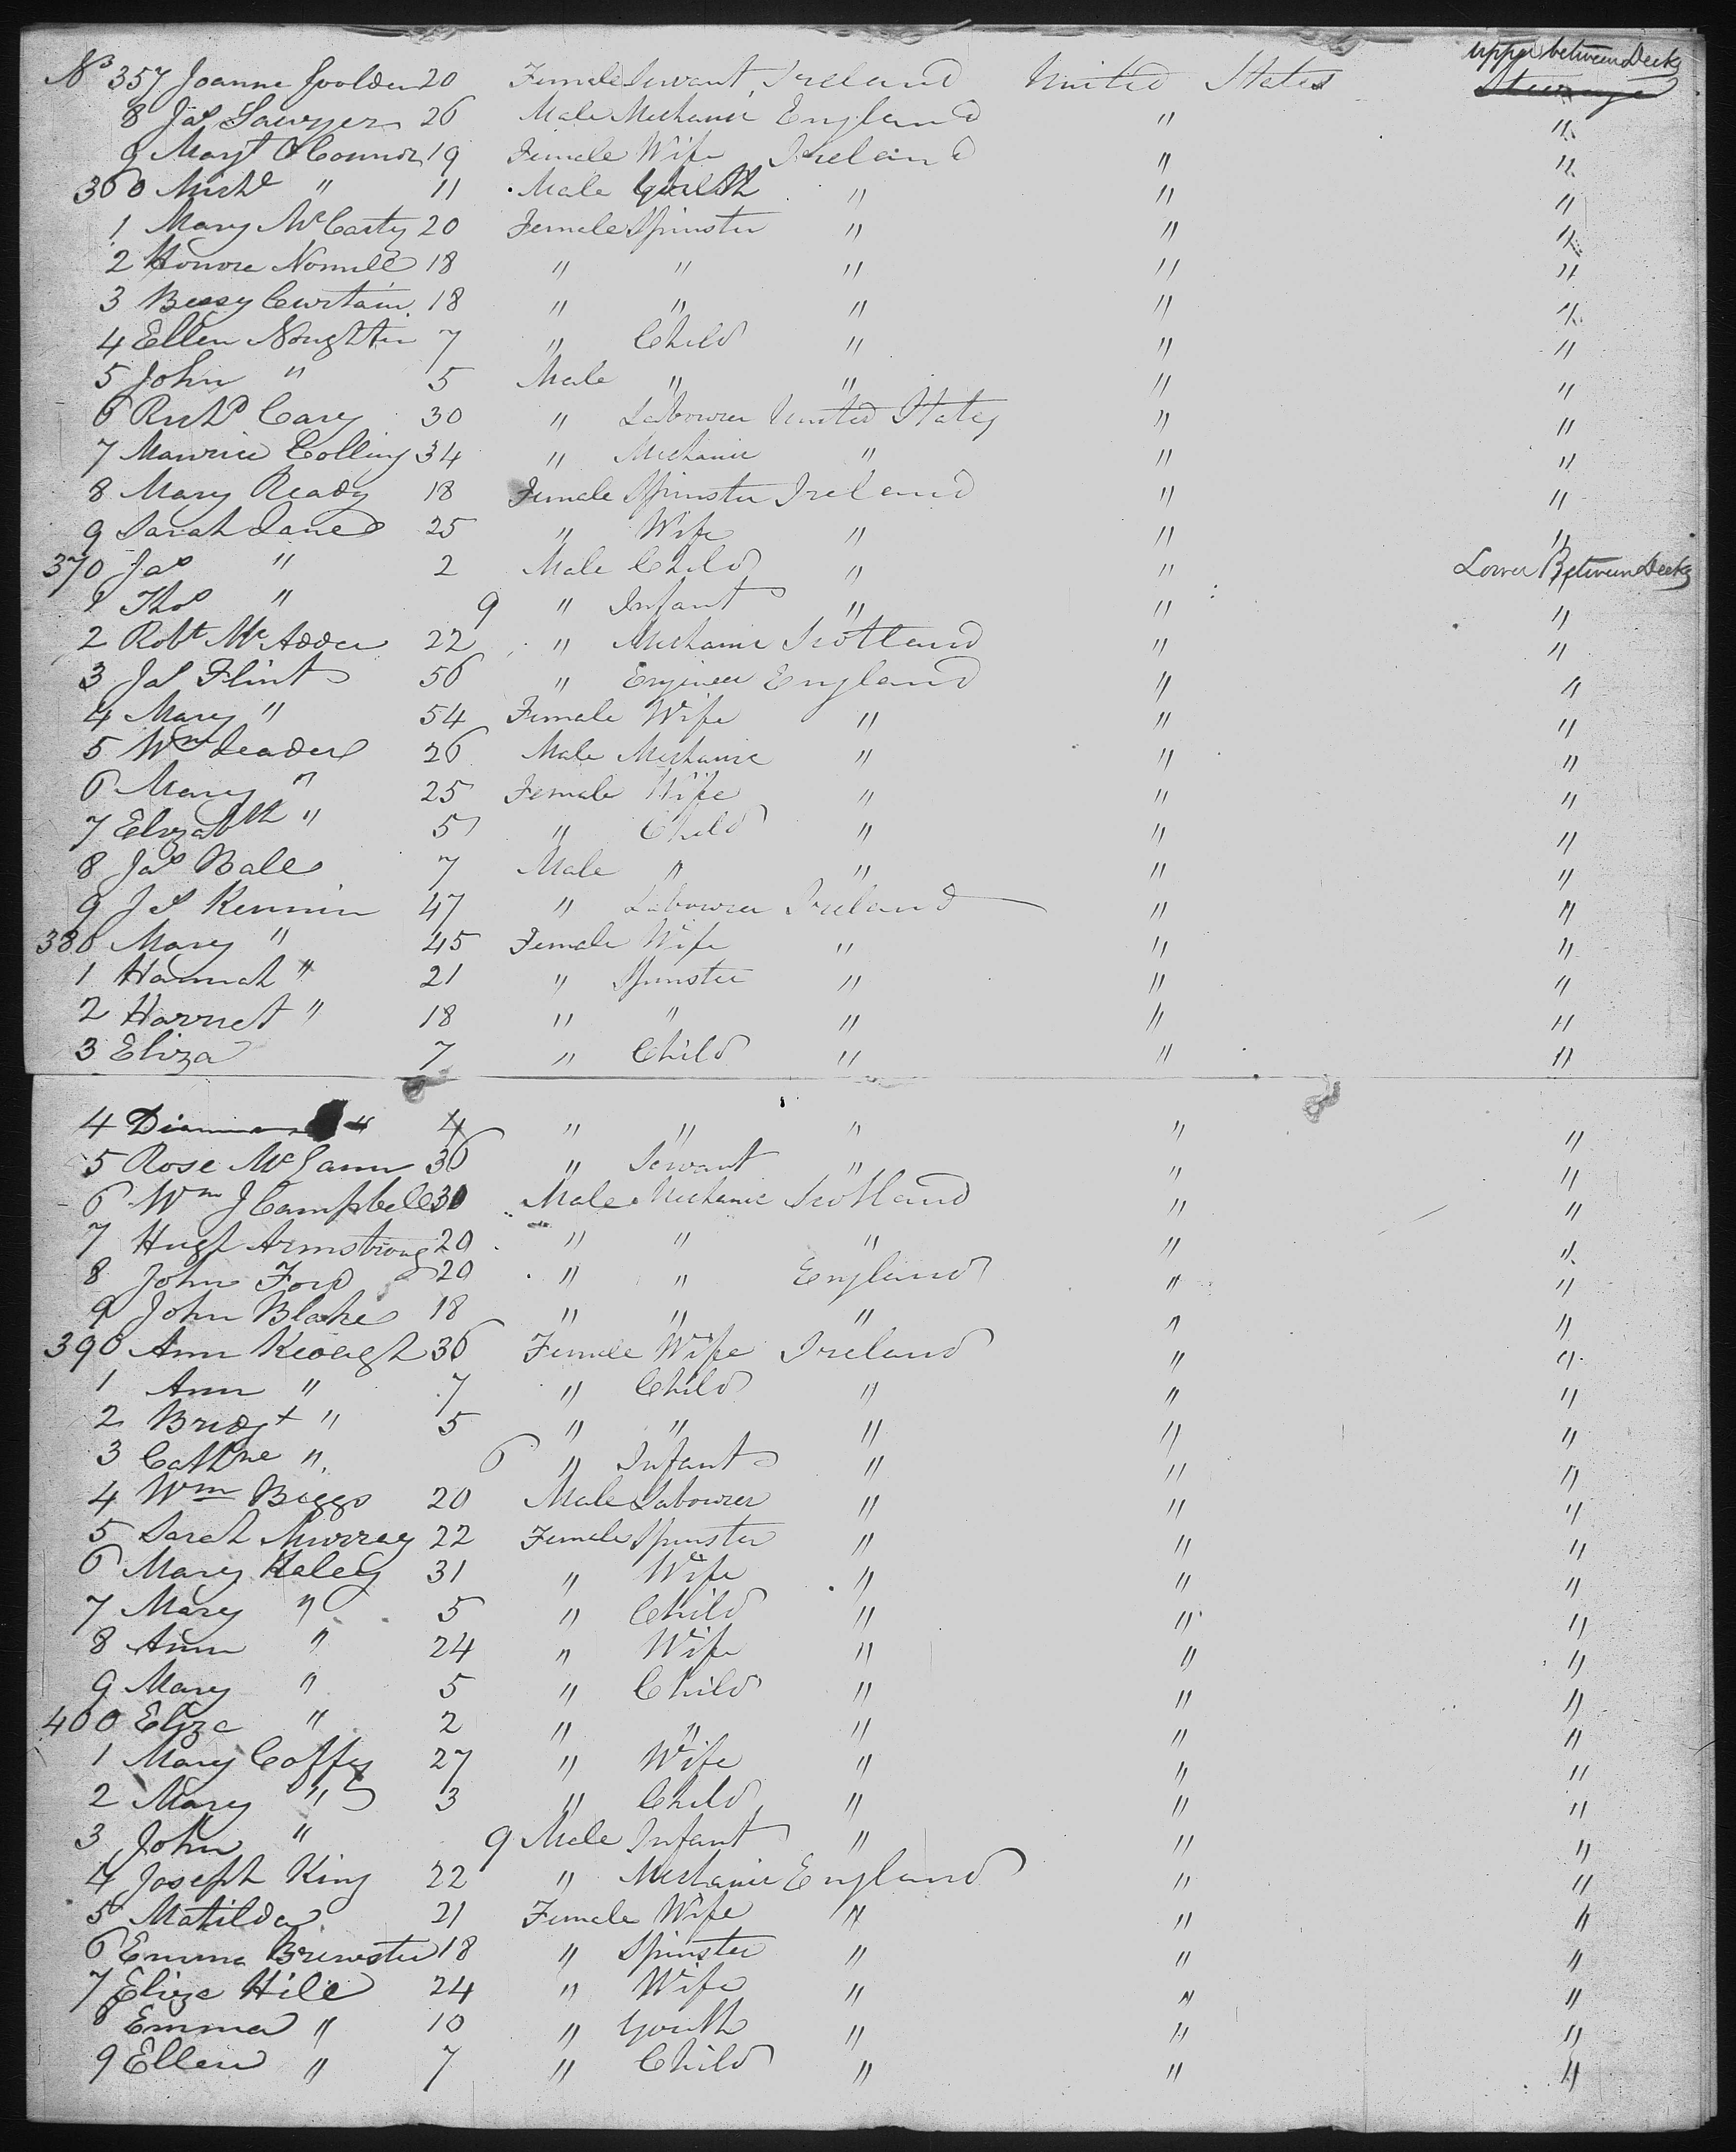 Upper between Decks
No 357 Joanna Goolden 20 Female Servant Ireland United States Steerage
8 Jas Sawyer 26 Male Mechanic England " "
9 Margt O Connor 19 Female Wife Ireland " "
360 Michl " 11 Male Youth " " "
1 Mary McCarty 20 Female Spinster " " "
2 Honora 18 " " " " "
3 Bessy Curtain 18 " " " " "
4 Ellen Noughten 7 " Child " " "
5 John " 5 Male " " " "
6 Richd Cary 30 " Labourer United States " "
7 Maurice Collins 34 " Mechanic " " "
8 Mary Ready 18 Female Spinster Ireland " "
9 Sarah Lane 25 " Wife " " "
370 Jas " 2 Male Child " " Lower Between Decks
1 Thos " 9 " Infant " " "
2 Robt McAdder 22 " Mechanic Scotland " "
3 Js Flint 56 " Engineer England " "
4 Mary " 54 Female Wife " " "
5 Wm Leader 26 Male Mechanic " " "
6 Mary " 25 Female Wife " " "
7 Elizabth " 5 " Child " " "
8 Jas Bale 7 Male " " " "
9 Js Kennin 47 " Labourer Ireland " "
380 Mary " 45 Female Wife " " "
1 Hannah " 21 " Spinster " " "
2 Harriet " 18 " " " " "
3 Eliza 7 " Child " " "
4 " 4 " " " " "
5 Rose McGann 36 " Servant " " "
6 Wm J Campbell 30 Male Mechanic Scotland " "
7 Hugh Armstrong 20 " " " " "
8 John Ford 20 " " England " "
9 John Blake 18 " " " " "
390 Ann Keough 36 Female Wife Ireland " "
1 Ann " 7 " Child " " "
2 Bridgt " 5 " " " " "
3 Cathne " 6 " Infant " " "
4 Wm Biggs 20 Male Labourer " " "
5 Sarah Murray 22 Female Spinster " " "
6 Mary Haley 31 " Wife " " "
7 Mary " 5 " Child " " "
8 Ann " 24 " Wife " " "
9 Mary " 5 " Child " " "
400 Eliza " 2 " " " " "
1 Mary Coffey 27 " Wife " " "
2 Mary " 3 " Child " " "
3 John " 9 Male Infant " " "
4 Joseph King 22 " Mechanic England " "
5 Matilda 21 Female Wife " " "
6 Emma Brewster 18 " Spinster " " "
7 Eliza Hill 24 " Wife " " "
8 Emma " 10 " Youth " " "
9 Ellen " 7 " Child " " "